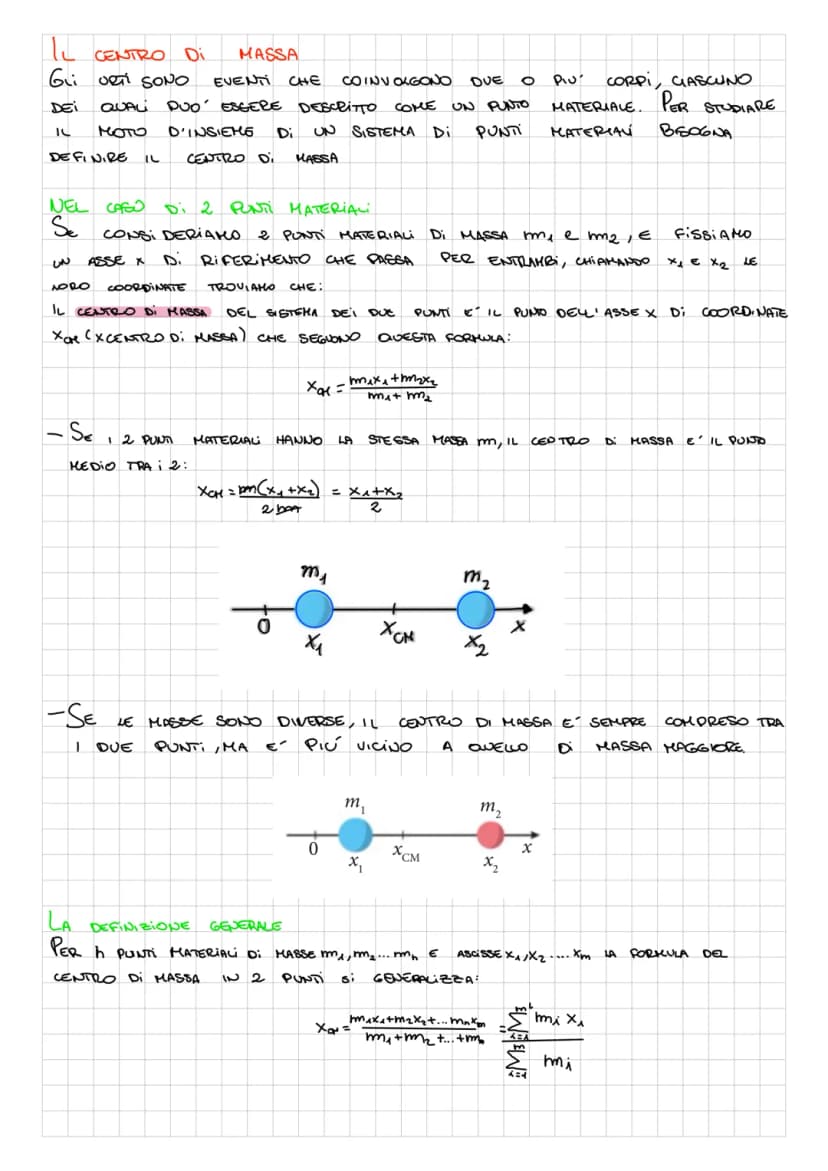 IL CENTRO Di MASSA
Gli URTi SONO EVENTi CHE COINVOLGONO DUE O PIU' CORPi, CIASCUNO
DEi QUALi PUO' ESSERE DESCRITTO COME UN PUNTO MATERIALE. PER STUDIARE
IL MOTO D'INSIEME Di UN SISTEMA Di PUNTi MATERIALi BISOGNA
DEFINIRE IL CENTRO Di MASSA
NEL CASO Di 2 PUNTi MATERIALi
Se CONSiDERIAMO 2 PUNTi MATERIALi Di MASSA m₁ e m₂, E FiSSiAMO
UN ASSE x Di RiFERiMENTO CHE PASSA PER ENTRAMBi, CHiAMANDO x₁ E x₂ LE
LORO COORDiNATE TROViAMO CHE:
IL CENTRO Di MASSA DEL SiSTEMA DEi DUE PUNTi E' IL PUNTO DELL'ASSE X Di COORDiNATE
XCM (XCENTRO Di MASSA) CHE SEGUONO QUESTA FORMULA:
XCM = m₁x₁+m₂x₂ / m₁+m₂
- Se i 2 PUNTi MATERIALi HANNO LA STESSA MASSA m, IL CENTRO Di MASSA E' IL PUNTO
MEDiO TRA i 2:
XCM = m(x₁+x₂) / 2m = x₁+x₂ / 2
m₁ m₂
0 X₁ XCM X₂ x
- SE LE MASSE SONO DIVERSE, IL CENTRO DI MASSA E' SEMPRE COMPRESO TRA
I DUE PUNTi, MA E' PIÚ VICINO A QUELLO Di MASSA MAGGIORE.
m₁ m₂
0 x₁ xCM x₂ x
LA DEFINIZIONE GENERALE
PER n PUNTi MATERIALi Di MASSE m₁, m₂... mn E ASCISSE x₁, x₂.... xm LA FORMULA DEL
CENTRO Di MASSA IN 2 PUNTi Si GENERALIZZA:
XCM = m₁x₁+m₂x₂+...mnxm / m₁+m₂+...+mn = Σ mi xi / Σ mi